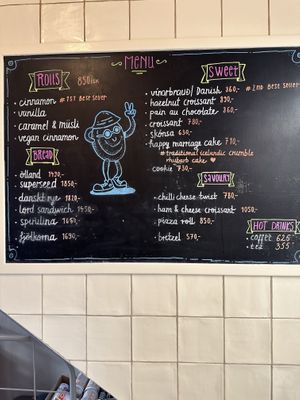 MENU
ROLLS 850 ISK
• cinnamon #1ST Best Seller
• vanilla
• caramel & müsli
• vegan cinnamon
BREAD
• öland 1470
• superseed 1850
• danskt rye 1820
• lord sandwich 1450
• speltlina 1650
• fjölkorna 1690
SWEET
• vínarbrauð/Danish 860,- #2ND Best Seller
• hazelnut croissant 890,-
• pain au chocolate 860,-
• croissant 730,-
• skónsa 630,-
• happy marriage cake 710,-
*traditional icelandic crumble
rhubarb cake ♥
• cookie 730,-
SAVOURY
• chilli cheese twist 780,-
• ham & cheese croissant 1050,-
• pizza roll 850,-
• pretzel 570,-
HOT DRINKS
• coffee 625
• tea 355